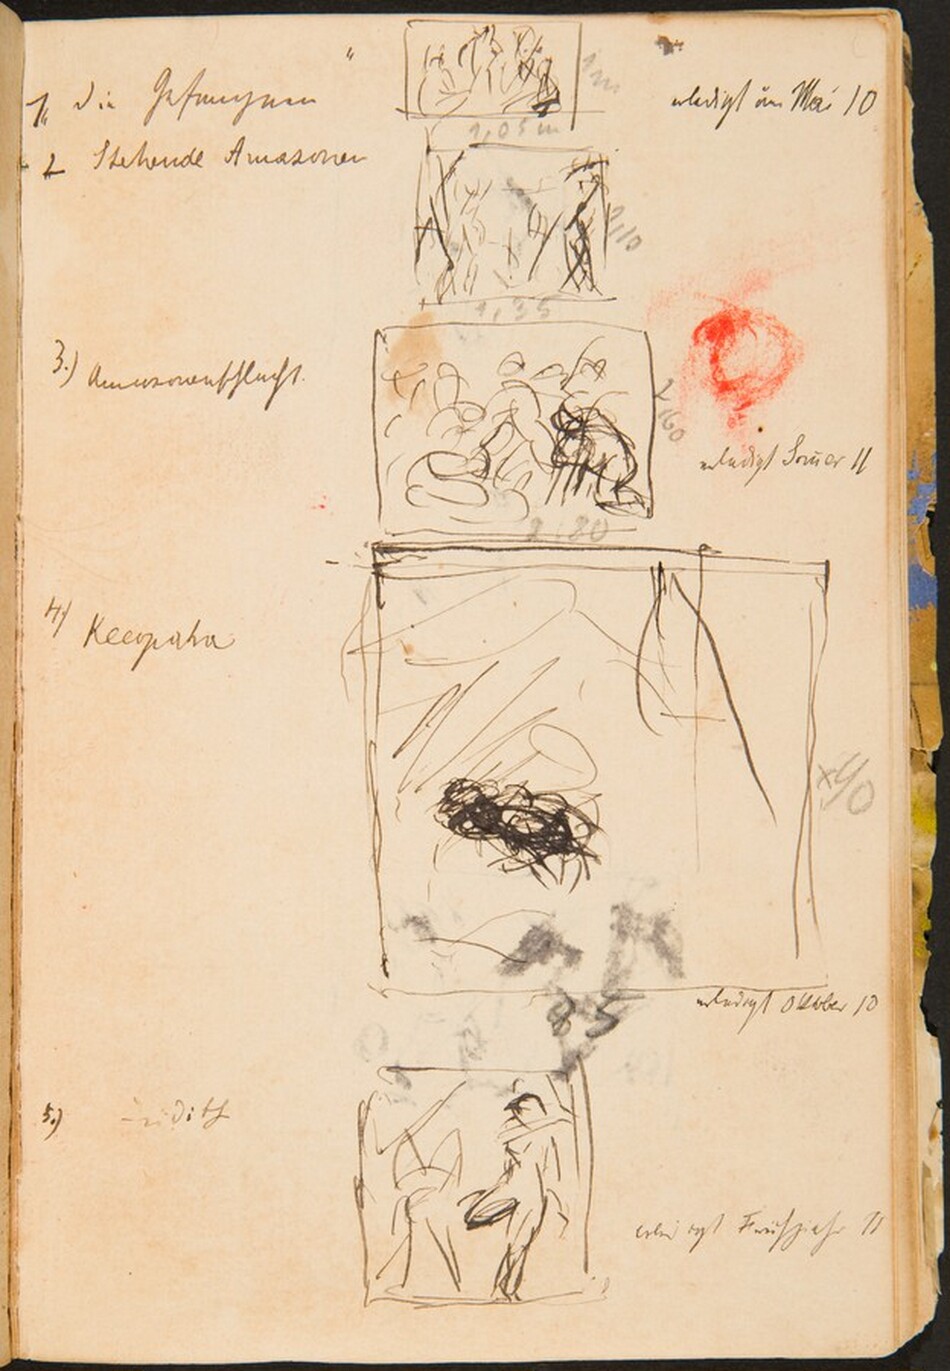 1. Die Gefangnen " erledigt im Mai 10
1 m
1,05 m
2 Stehende Amazonen
1,10
1,35
3.) Amazonenschlacht.
2,60
erledigt Somer 11
2,80
4) Kleopatra
erledigt Oktober 10
85
5.) Judith
erledigt Frühjahr 11